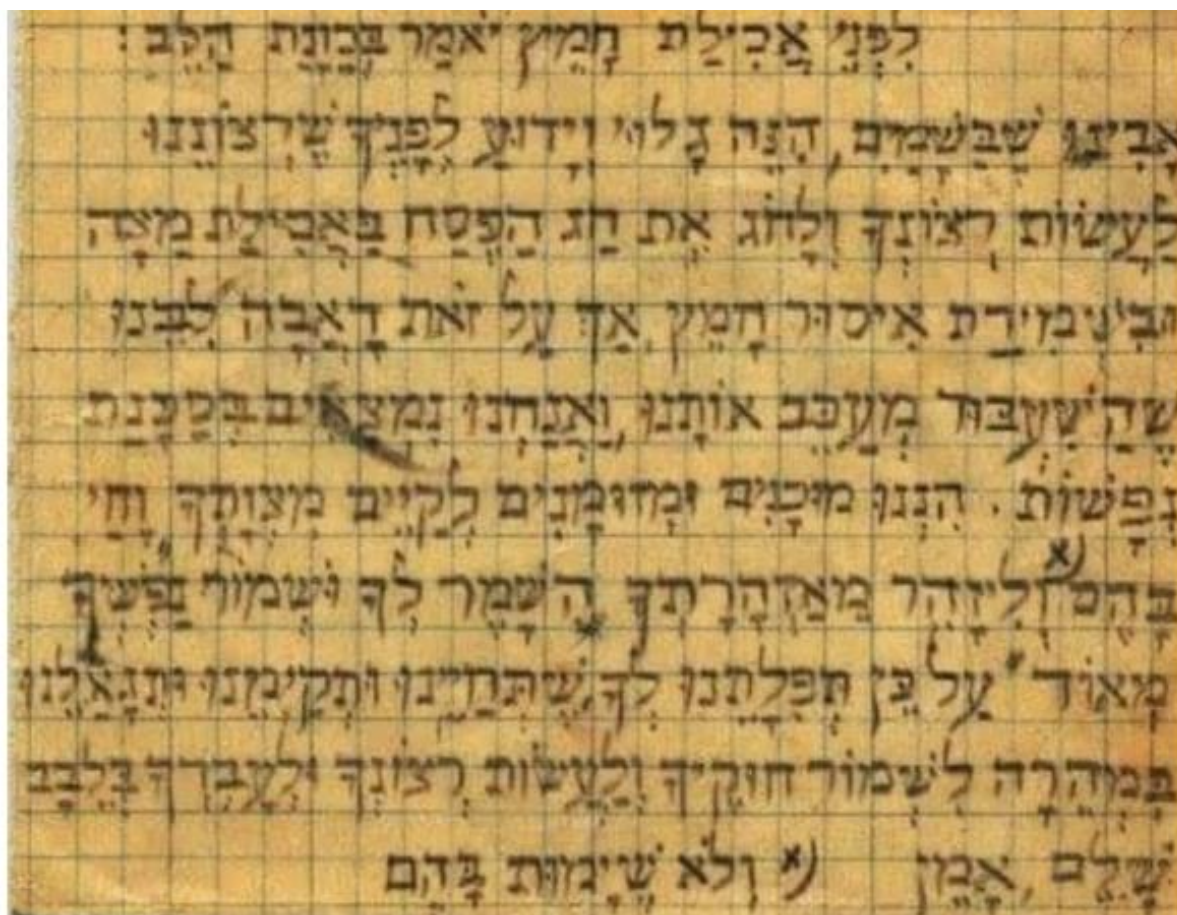 לִפְנֵי אֲכִילַת חָמֵץ יֹאמַר בְּכַוָנַת הַלֵּב :
אָבִינוּ שֶׁבַּשָׁמַיִם, הִנֵּה גָלוּי וְיָדוּעַ לְפָנֶיךָ שֶׁרְצוֹנֵנוּ
לַעֲשׂוֹת רְצוֹנְךָ וְלָחֹג אֶת חַג הַפֶּסַח בַּאֲכִילַת מַצָּה
וּבִשְׁמִירַת אִיסוּר חָמֵץ, אַךְ עַל זֹאת דָאֲבָה לִבֵּנוּ
שֶׁהַשִׁעְבּוּד מְעַכֵּב אוֹתָנוּ, וַאֲנַחְנוּ נִמְצָאִים בְּסַכָּנַת
נְפָשׁוֹת. הִנְנוּ מוּכָנִים וּמְזוּמָנִים לְקַיֵּים מִצְוֹתֶךָ "וָחַי
בָּהֶם (א וְלִיזָהֵר מֵאַזְהָרָתְךָ "הִשָּׁמֵר לְךָ וּשְׁמוֹר נַפְשְׁךָ
מְאוֹד" עַל כֵּן תְּפִלָתֵנוּ לְךָ שֶׁתְּחַיֵינוּ וּתְקַיְמֵנוּ וְתִגְאָלֵנוּ
בִּמְהֵרָה לִשְׁמוֹר חוּקֶיךָ וְלַעֲשׂוֹת רְצוֹנְךָ וּלְעָבְדְךָ בְּלֵבָב
שָׁלֵם, אָמֵן (א וְלֹא שֶׁיָמוּת בָּהֶם